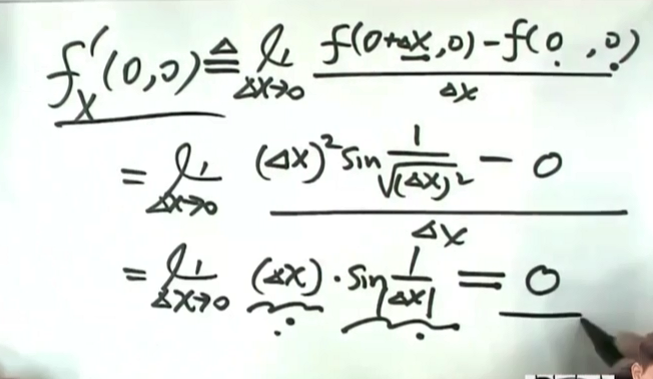 f'ₓ(0,0) ≜ lim_{Δx→0} [f(0+Δx,0) - f(0,0)] / Δx
= lim_{Δx→0} [(Δx)² sin 1/√(Δx)² - 0] / Δx
= lim_{Δx→0} (Δx) · sin 1/|Δx| = 0